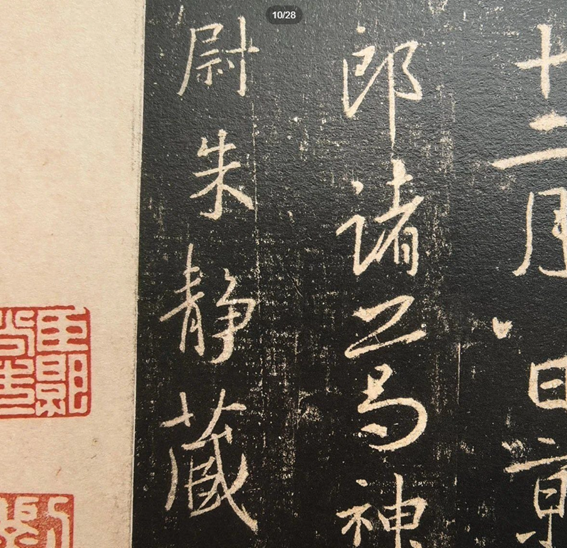 10/28
十二月日京
郎諸葛神
尉朱静藏